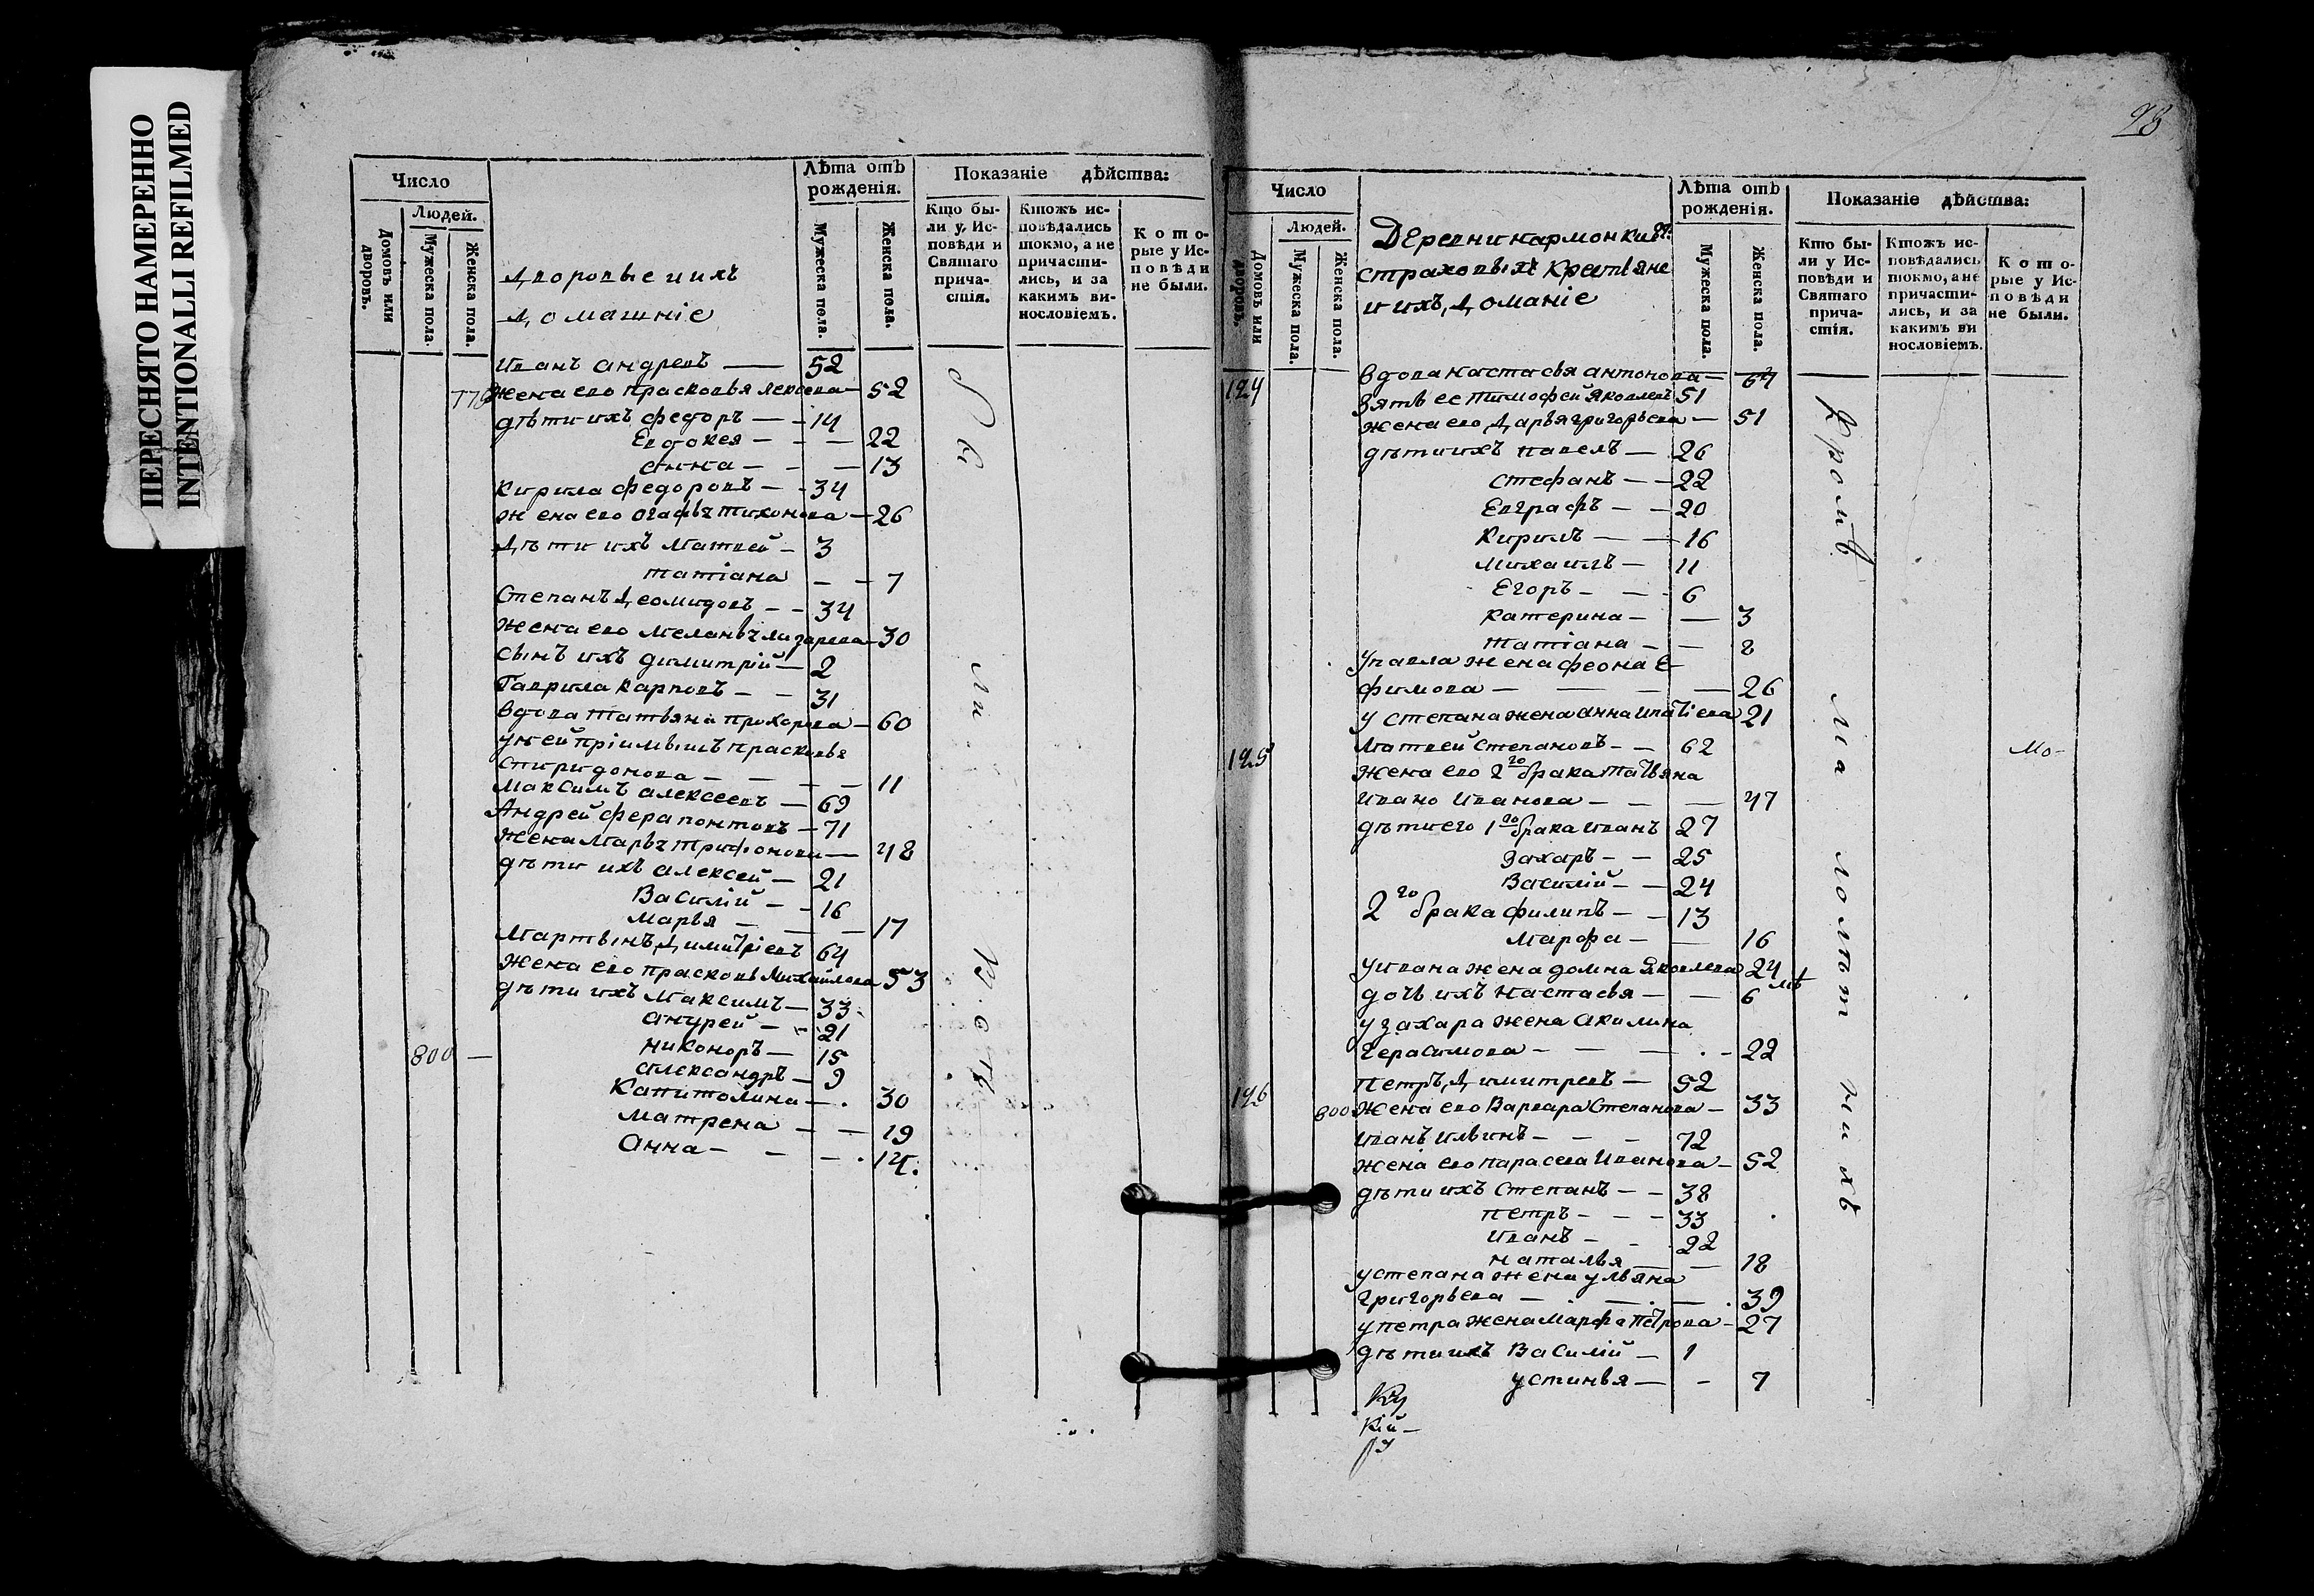 ПЕРЕСНЯТО НАМЕРЕННО
INTENTIONALLI REFILMED
Число
Людей.
Домовъ или дворовъ.
Мужеска пола.
Женска пола.
Лѣта отъ рожденія.
Мужеска пола.
Женска пола.
Показаніе дѣйства:
Кто бы-
ли у Ис-
повѣди и
Святаго
прича-
стія.
Ктожъ ис-
повѣдались
токмо, а не
причасти-
лись, и за
какимъ ви-
нословіемъ.
Кото-
рые у Ис-
повѣди
не были.
Дворовые и ихъ
домашніе
Иванъ Андреевъ — 52
Жена его Прасковья Алексеева — 52
дѣти ихъ Федоръ — 14
Евдокея — 22
Анна — 13
Кирила Федоровъ — 34
Жена его Агафья Тихонова — 26
Дѣти ихъ Матвей — 3
Татіана — 7
Степанъ Деомидовъ — 34
Жена его Меланья Лазарева — 30
Сынъ ихъ Димитрій — 2
Гаврила Карповъ — 31
вдова Татьяна Прохорова — 60
у ней пріимышъ Прасковья
Спиридонова — 11
Максимъ Алексеевъ — 69
Андрей Ферапонтовъ — 71
Жена Марья Трифонова — 48
дѣти ихъ Алексей — 21
Василій — 16
Марья — 17
Мартынъ Димитріевъ 64
Жена его Прасковья Михайлова 53
дѣти ихъ Максимъ — 33
Андрей — 21
Никоноръ — 15
800 —
Александръ — 9
Капитолина — 30
Матрена — 19
Анна — 14.
28
Число
Людей.
Домовъ или дворовъ.
Мужеска пола.
Женска пола.
Деревни Кармонки
Страховыхъ Крестьяне
и ихъ Доманіе
Лѣта отъ рожденія.
Мужеска пола.
Женска пола.
Показаніе дѣйства:
Кто бы-
ли у Ис-
повѣди и
Святаго
прича-
стія.
Ктожъ ис-
повѣдались
токмо, а не
причасти-
лись, и за
какимъ ви
нословіемъ.
Кото-
рые у Ис-
повѣди
не были.
124 вдова Настасья Антонова —
Зять ее Тимофей Яковлевъ 51
жена его Дарья Григорьева — 51
дѣти ихъ Павелъ — 26
Стефанъ — 22
Евграфъ — 20
Кирилъ — 16
Михаилъ — 11
Егоръ — 6
Катерина — 3
Татіана — 8
у Павла жена Феона Е-
фимова — 26
у Степана жена Анна Ипатіева 21
125 Матвей Степановъ — 62
Жена его 2го брака Татьяна
Ивано Иванова — 47
дѣти его 1го брака Иванъ 27
Захаръ — 25
Василій — 24
2го брака Филипъ — 13
Марфа — 16
у Ивана жена Домна Яковлева 24
дочь ихъ Настасья — 6
у Захара жена Акилина
Герасимова — 22
126 Петръ Димитревъ — 52
800 Жена его Варвара Степанова — 33
Иванъ Ильинъ — 72
жена его Парасева Иванова — 52
дѣти ихъ Степанъ — 38
Петръ — 33
Иванъ — 22
Наталья — 18
у Степана жена Ульяна
Григорьева — 39
у Петра жена Марфа Петрова — 27
дѣти ихъ Василій — 1
Устинья — 7
Кромѣ
Мо-